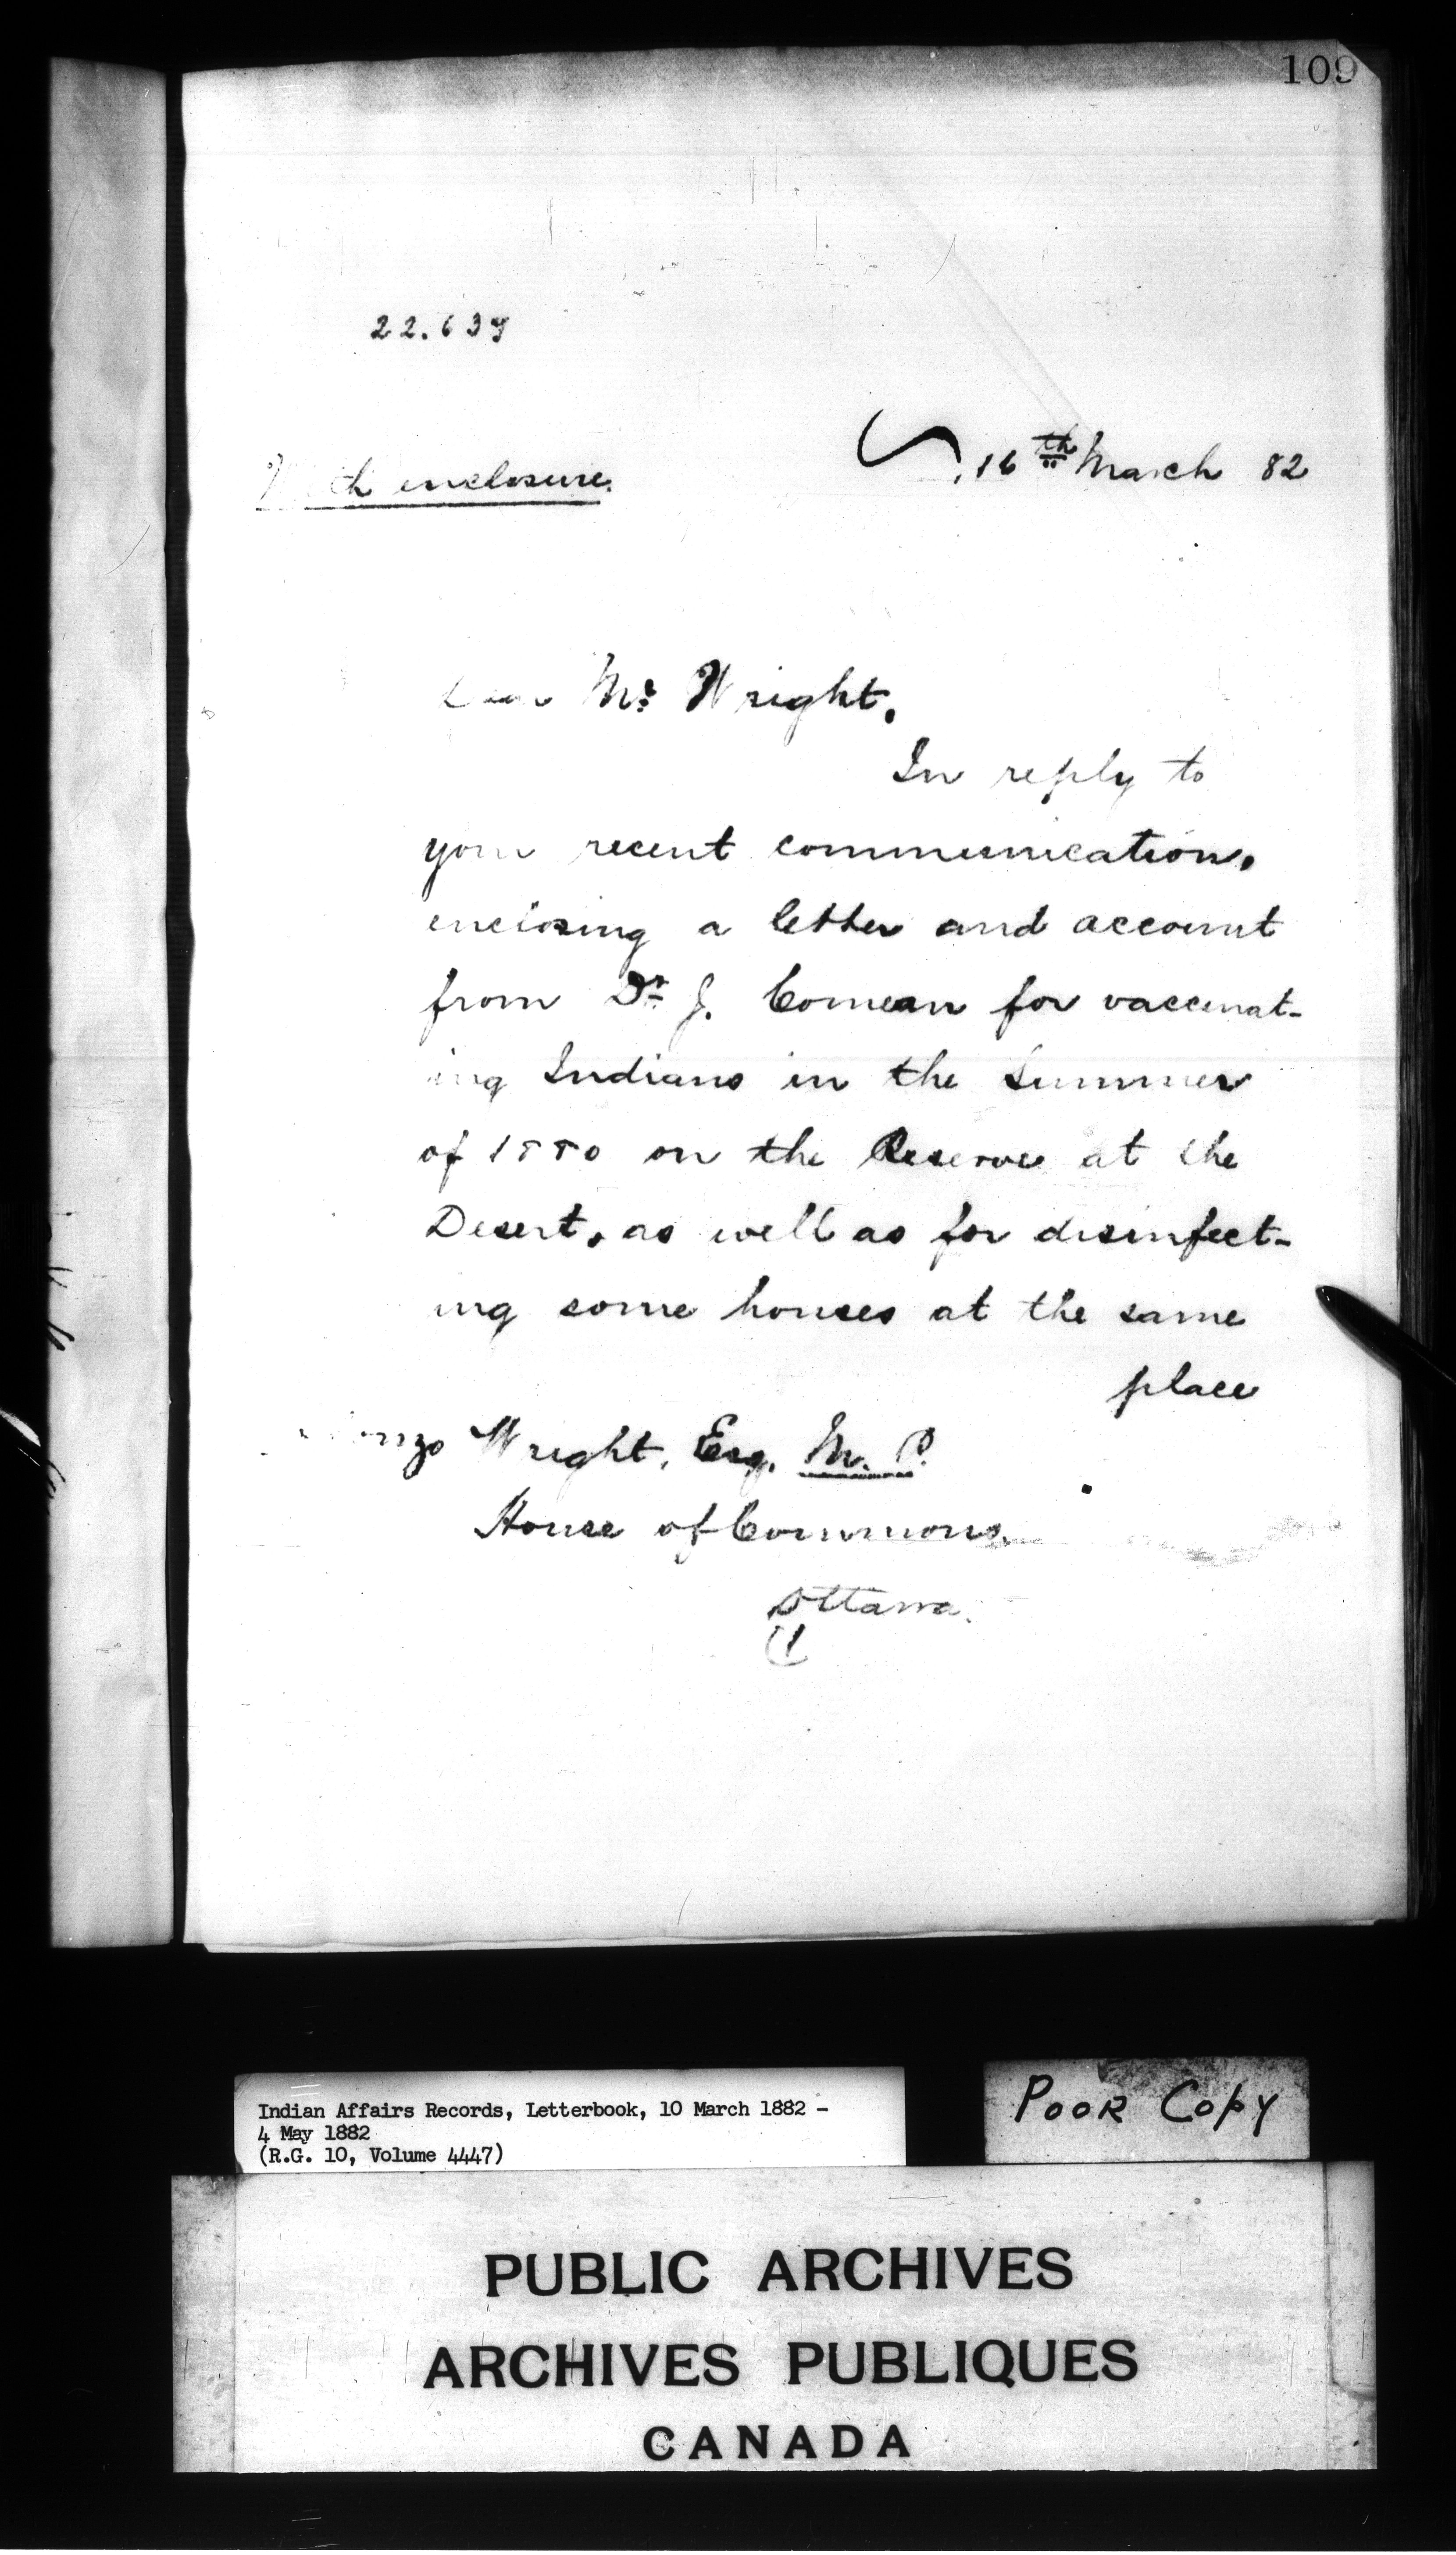 109
22.639
16th March 82
With enclosure.
Dear Mr Wright,
In reply to
your recent communication,
enclosing a letter and account
from Dr J. Comeau for vaccinat-
ing Indians in the Summer
of 1880 on the Reserve at the
Desert, as well as for disinfect-
ing some houses at the same
place
Wright, Esq. M. P.
House of Commons,
Ottawa.
Indian Affairs Records, Letterbook, 10 March 1882 -
4 May 1882
(R.G. 10, Volume 4447)
POOR COPY
PUBLIC ARCHIVES
ARCHIVES PUBLIQUES
CANADA